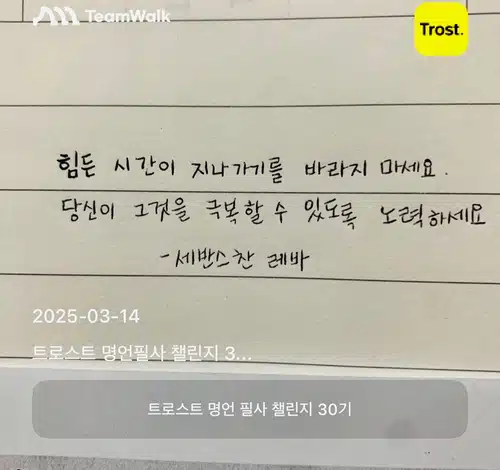 TeamWalk
Trost.
힘든 시간이 지나가기를 바라지 마세요.
당신이 그것을 극복할 수 있도록 노력하세요
-세반스찬 레바
2025-03-14
트로스트 명언필사 챌린지 3...
트로스트 명언 필사 챌린지 30기